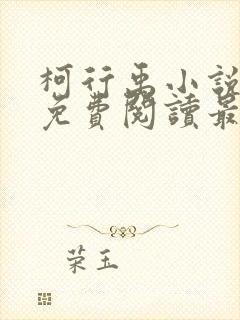 柯行禹小說
免費閱讀最
荣玉